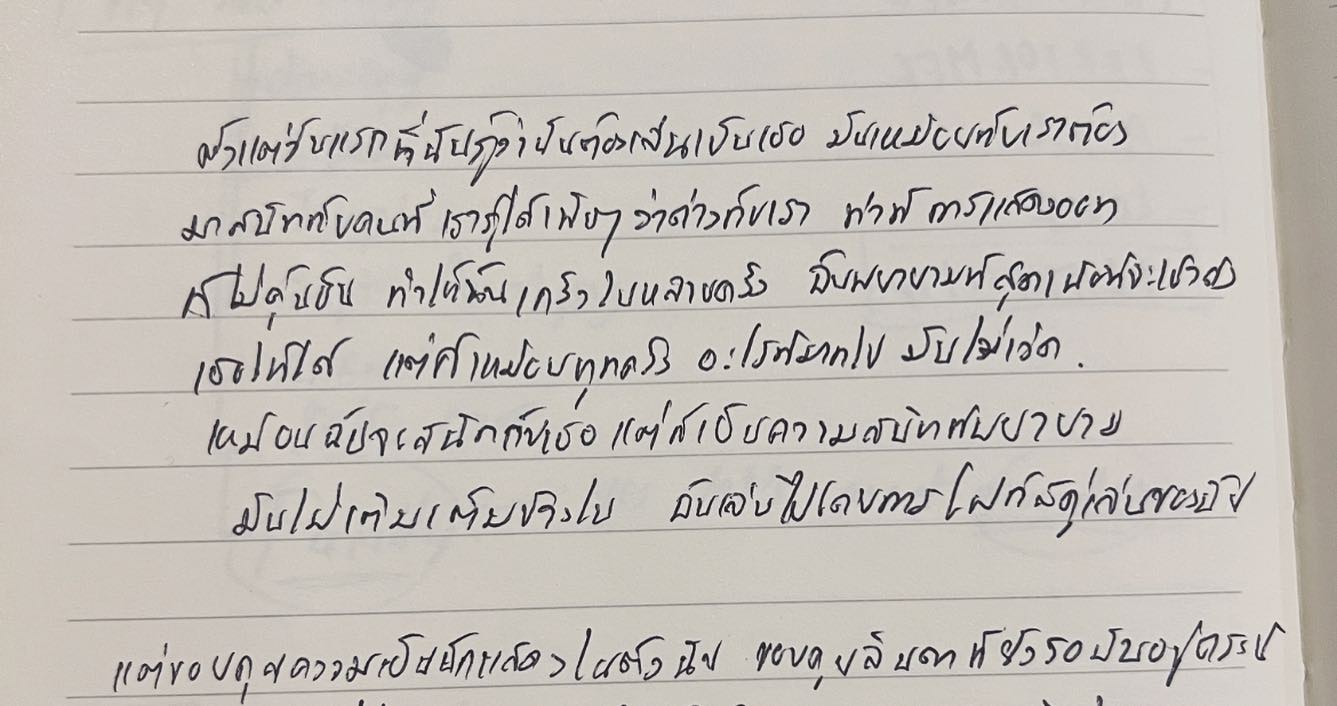 ตั้งแต่วันแรกที่ฉันรู้ว่าฉันต้องเล่นเป็นเธอ มันเหมือนกับเราต้อง
มาสนิทกับคนที่เรารู้ได้เพียงๆ ว่าต่างกับเรา ท่าที การแสดงออก
ที่ไม่คุ้นชิน ทำให้ฉันเกร็งในหลายครั้ง ฉันพยายามที่สุดเพื่อที่จะเข้าถึง
เธอให้ได้ แต่ก็เหมือนทุกครั้ง อะไรที่มากไป มันไม่เวิค.
เหมือนฉันจะสนิทกับเธอ แต่ก็เป็นความสนิทที่พยายาม
มันไม่เต็ม ฉันเล่นไปโดยการ
แต่ขอบคุณความเป็นนักแสดงในตัวฉัน ขอบคุณจินตนาที่ยังรอฉันอยู่